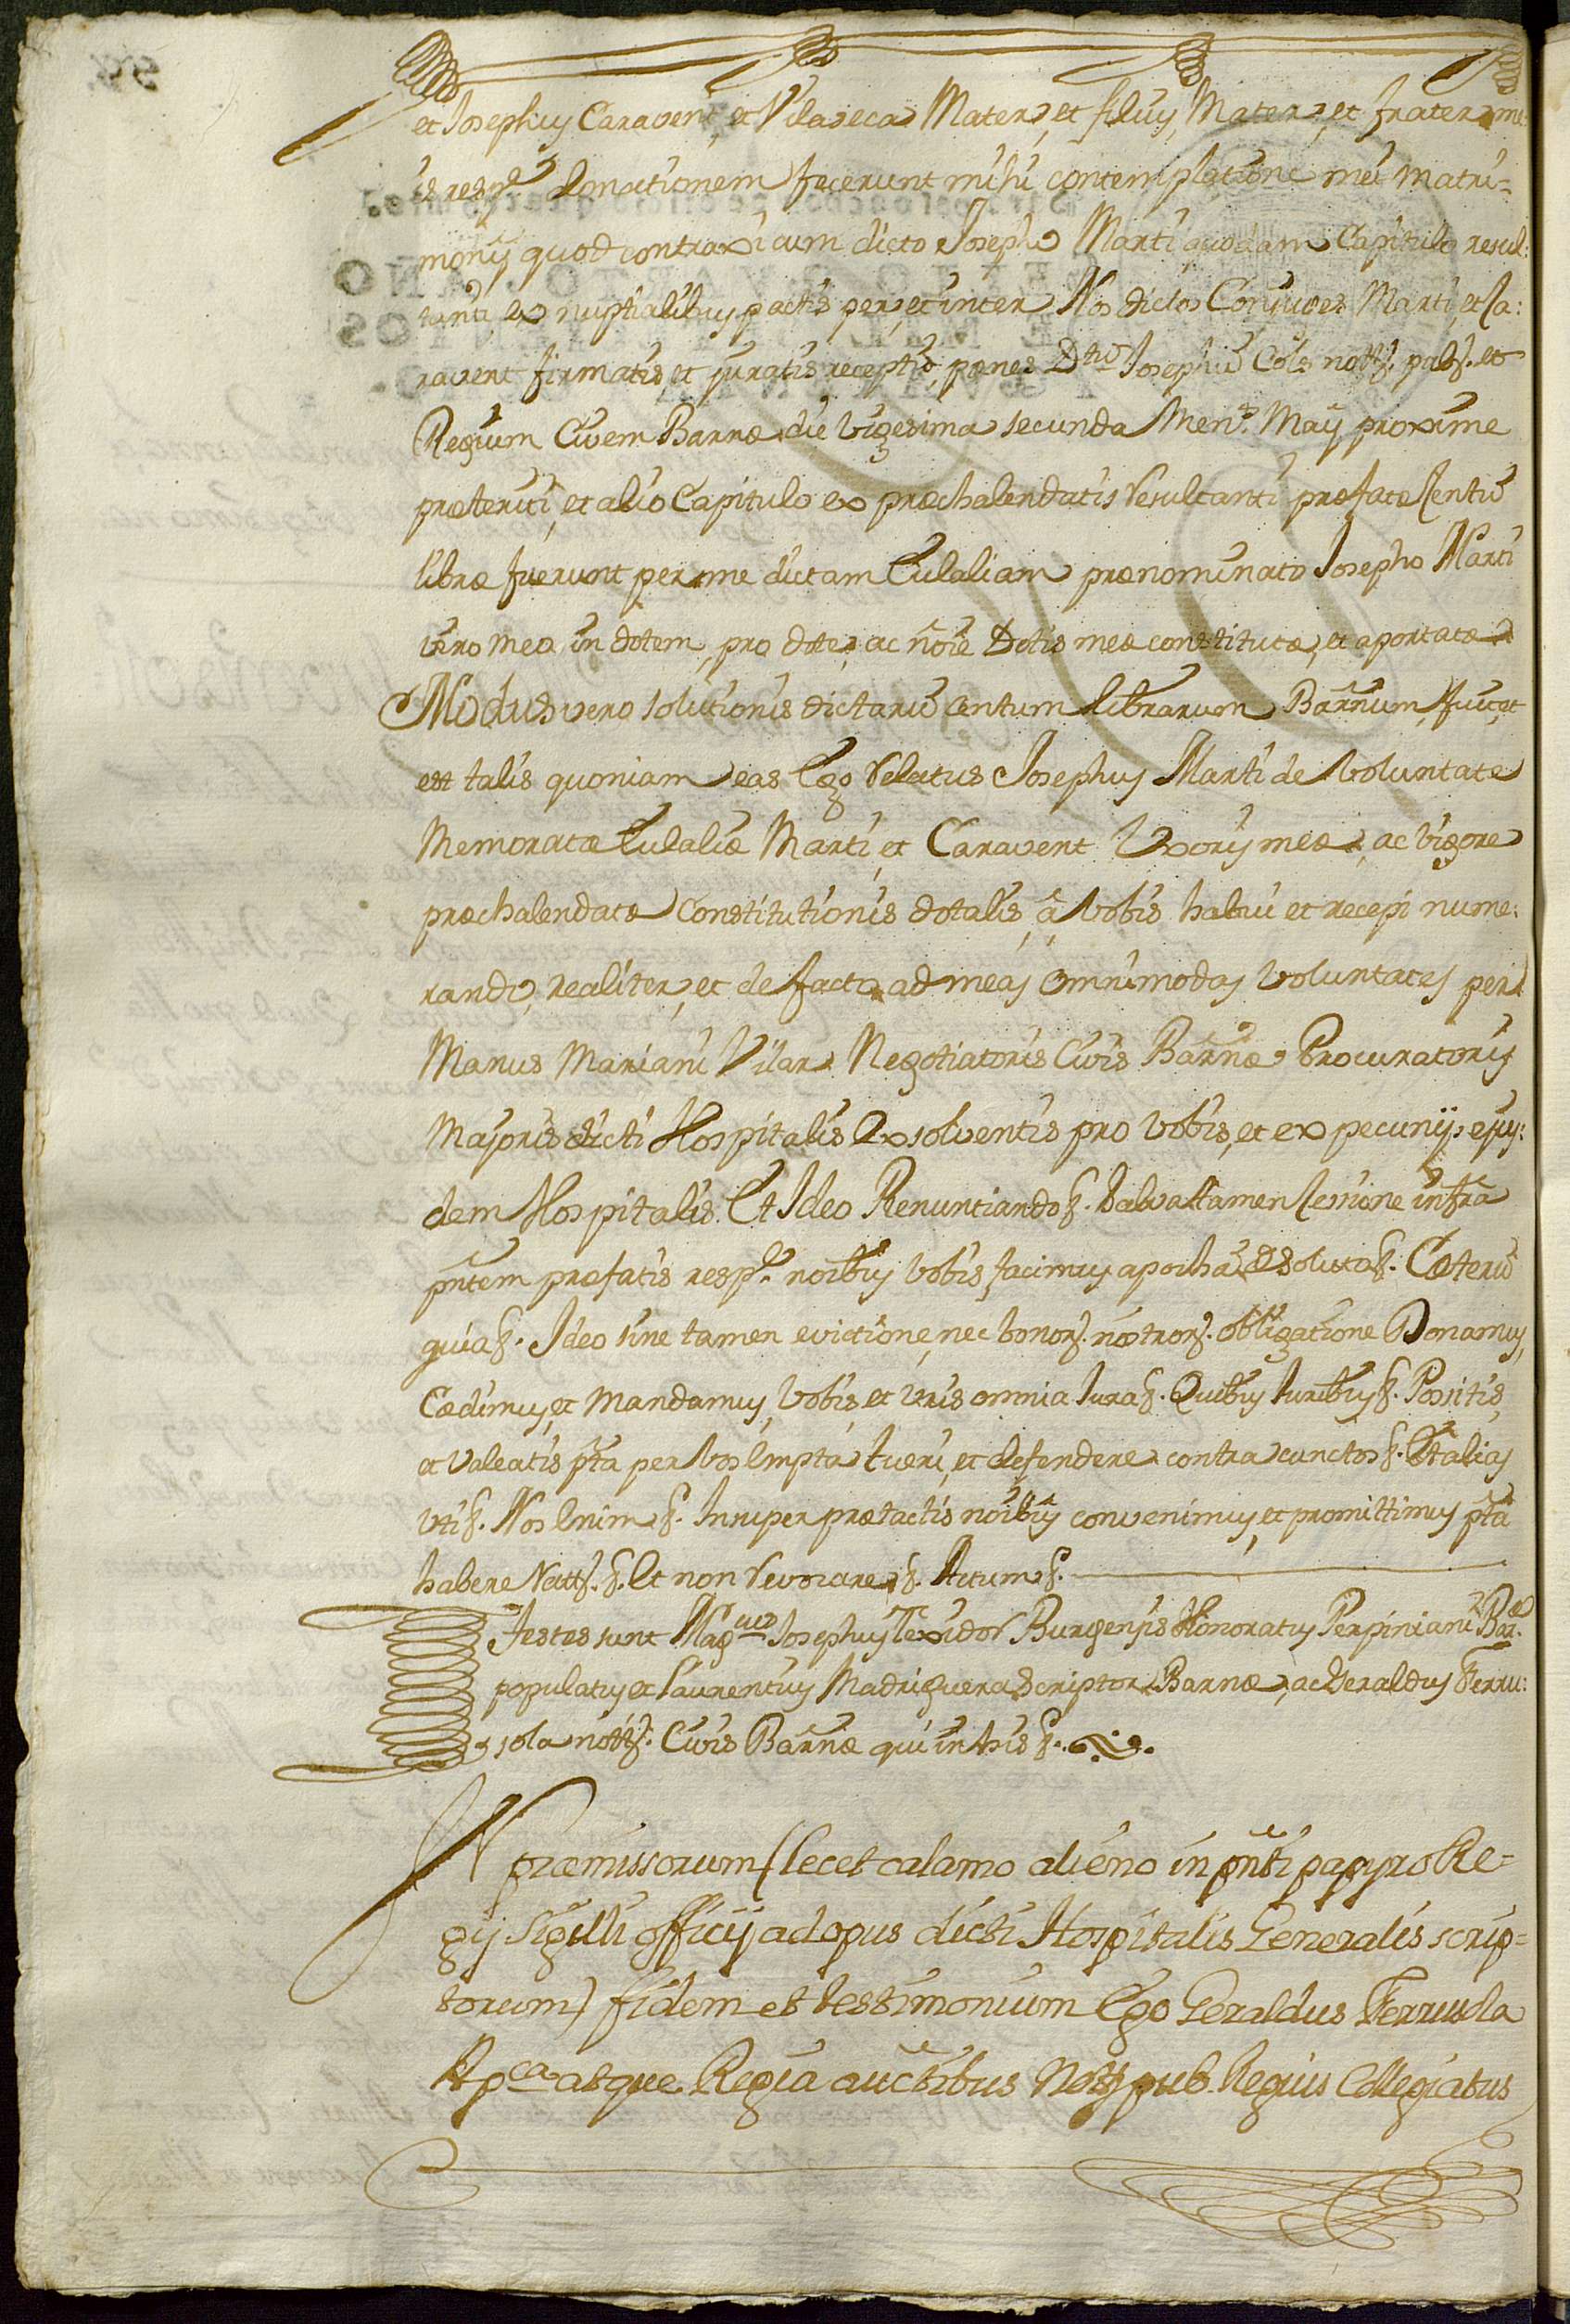 et Josephus Caravent, et Vilaseca Mater, et filius, Mater, et frater me:
is respē donationem fecerunt mihi contemplatione mei matri=
monij quod contraxi cum dicto Joseph Marti quodam Capitulo resul:
tanti ex nuptialibus pactis per, et inter Nos dictos Conjuges Marti, et Ca:
ravent firmatis, et juratis receptis, penes Dtū Josephū Cols nott. pub. et
Regium Civem Barnæ die vigesima secunda Mens. Maij proxime
præteriti, et alio Capitulo ex præchalendatis resultanti præfatæ Centū
libræ fuerunt per me dictam Eulaliam prænominato Josepho Marti
viro meo in dotem, pro dote, ac nōie Dotis meæ constitutæ, et aportatæ
Modus vero solutionis dictarū centum librarum Barñum, fuit, et
est talis quoniam eas Ego relatus Josephus Marti de voluntate
Memoratæ Eulaliæ Marti, et Caravent Uxoris meæ, ac vigore
præchalendatæ Constitutionis dotalis, â vobis habui et recepi nume:
rando, realiter, et de facto ad meas omnimodas voluntates per
Manus Mariani Vilar Negotiatoris Civis Barñæ Procuratoris
Majoris dicti Hospitalis Exsolventis pro vobis, et ex pecunijs ejus:
dem Hospitalis. Et Ideo Renuntiando &. Salva tamen Cessione infrā
pñtem præfatis respē. noibus vobis facimus apocham & soluta &. Cæterū
quia &. Ideo sine tamen evictione, nec bonor. nostror. obligatione Donamus,
Cædimus, et Mandamus, Vobis, et Vris omnia Jura &. Quibus Juribus &. Possitis,
et Valeatis p̃ta per Vos Empta tueri, et defendere contra cunctos &. Et alias
uti &. Nos Enim &. Insuper prætactis nōibus convenimus, et promittimus p̃ta
habere Ratt. &. Et non revocare &. Actum &.
Testes sunt Magcus Josephus Texidor Burgensis Honoratus Perpiniani Bar.æ
populatus et Laurentius Madriguera Scriptor Barnæ, ac Geraldus Ferru:
sola nott. Civis Barñæ qui in his &.
IN præmissorum (licet calamo alieno in pñti papyro Re=
gij Sigilli officij ad opus dicti Hospitalis Generalis scrip=
torum) fidem et testimonium Ego Geraldus Ferrusola
Apca atque Regia auctibus Nott pub. Regius Collegiatus